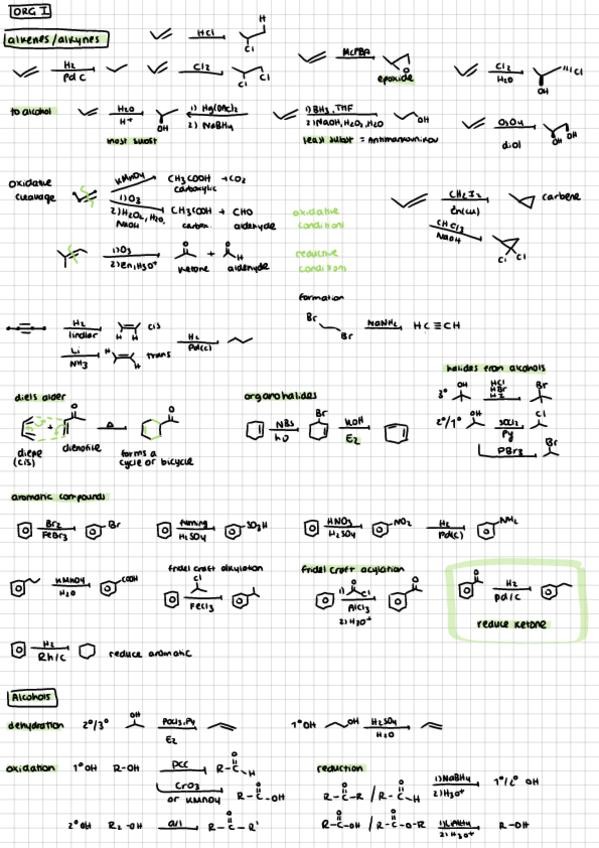 ORG I
alkenes/alkynes
HCl
H
Cl
H2
Pd C
Cl2
Cl
Cl
McPBA
O
epoxide
Cl2
H2O
Cl
OH
to alcohol
H2O
H+
OH
1) Hg(OAc)2
2) NaBH4
most subst
1) BH3, THF
2) NaOH, H2O2, H2O
OH
least subst = antimarkovnikov
OsO4
OH
OH
diol
oxidative
cleavage
KMnO4
CH3COOH + CO2
carboxylic
1) O3
2) H2O2, H2O,
NaOH
CH3COOH + CHO
carbox. aldehyde
oxidative
conditions
1) O3
2) Zn, H3O+
O
+
O
H
ketone aldehyde
reductive
conditions
CH2I2
Zn(Cu)
carbene
CHCl3
NaOH
Cl Cl
formation
Br
Br
NaNH2
HC≡CH
H2
lindlar
H H
cis
Li
NH3
H
H
trans
H2
Pd(C)
diels alder
+
O
Δ
O
diene
(cis)
dienofile
forms a
cycle or bicycle
organohalides
NBS
hv
Br
KOH
E2
halides from alcohols
3°
OH
HCl
HBr
HI
Br
2°/1°
OH
SOCl2
Py
Cl
PBr3
Br
aromatic compounds
Br2
FeBr3
Br
fuming
H2SO4
SO3H
HNO3
H2SO4
NO2
H2
Pd(C)
NH2
KMnO4
H2O
COOH
fridel craft alkylation
Cl
FeCl3
fridel craft acylation
1)
O
Cl
AlCl3
2) H3O+
O
O
H2
Pd/C
reduce ketone
H2
Rh/C
reduce aromatic
Alcohols
dehydration
2°/3°
OH
POCl3, Py
E2
1°OH
OH
H2SO4
H2O
oxidation
1°OH
R-OH
PCC
O
R-C-H
CrO3
or KMnO4
O
R-C-OH
2° OH
R2-OH
all
O
R-C-R'
reduction
O
R-C-R
/
O
R-C-H
1) NaBH4
2) H3O+
1°/2° OH
O
R-C-OH
/
O
R-C-O-R
1) LiAlH4
2) H3O+
R-OH